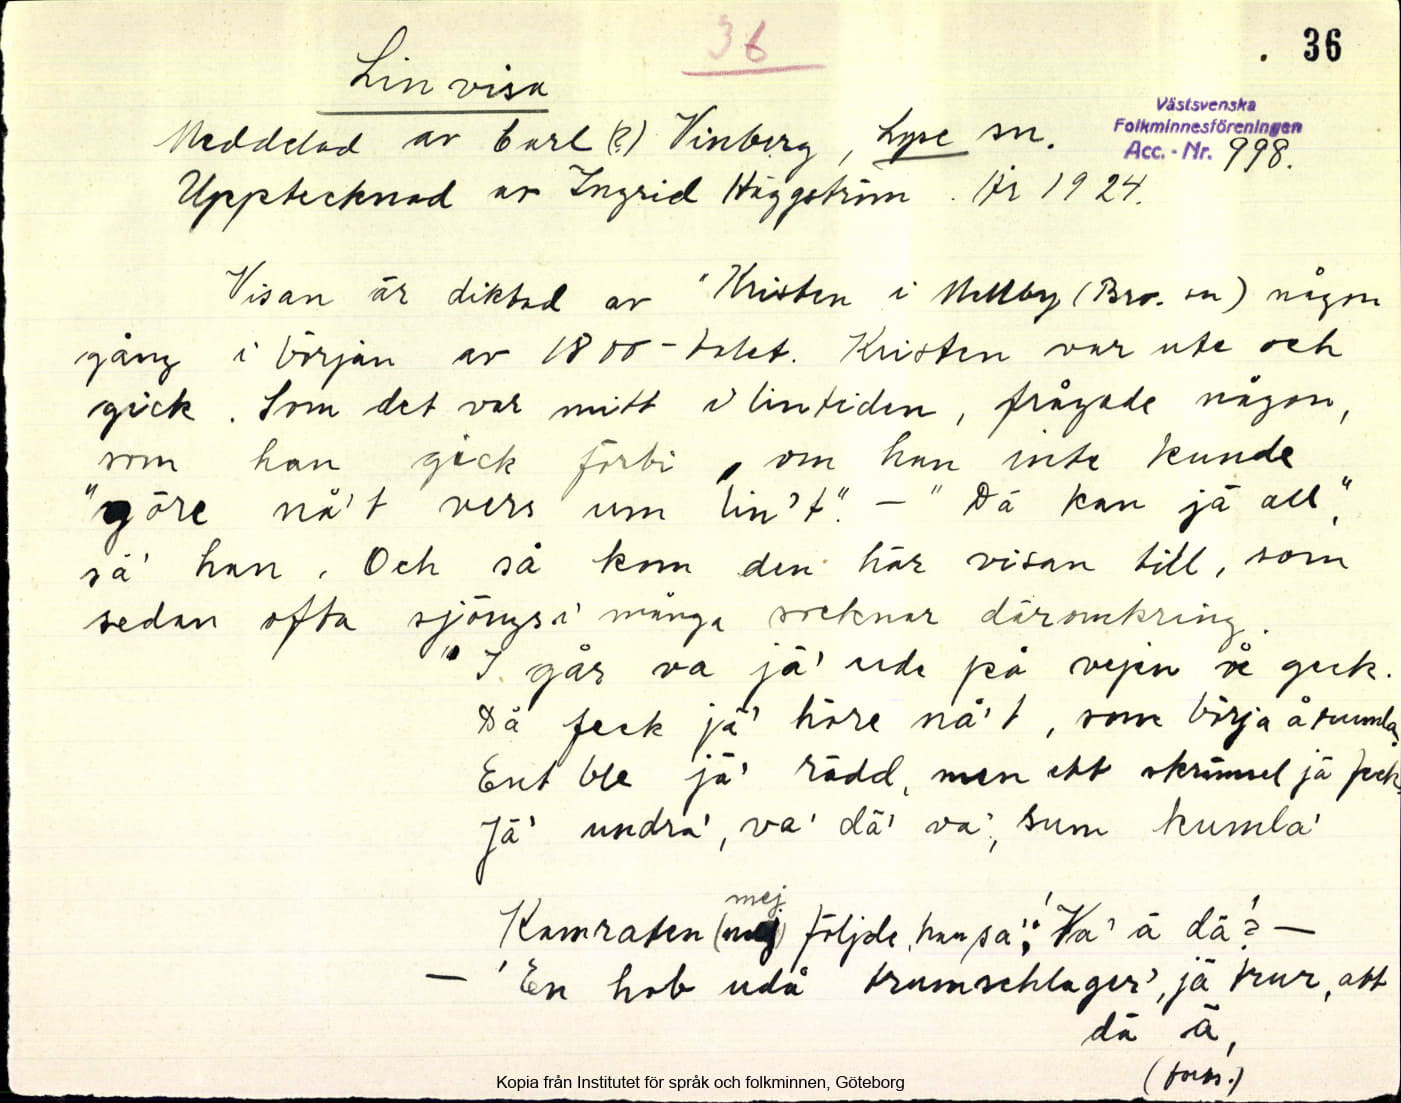 36
. 36
Lin visa
Västsvenska
Folkminnesföreningen
Acc. - Nr. 998.
Meddelad av Carl (?) Vinberg, Lyse sn.
Upptecknad av Ingrid Häggström. År 1924.
Visan är diktad av "Kristen i Mellby (Bro. sn) någon
gång i början av 1800-talet. Kristen var ute och
gick. Som det var mitt i lintiden, frågade någon,
som han gick förbi, om han inte kunde
"göre nå't vers um lin't". - "Dä kan jä all",
sä' han. Och så kom den här visan till, som
sedan ofta sjöngs i många socknar däromkring.
"I går va jä' ude på vejen å geck.
Då feck jä' höre nå't, som börja å rumla.
Ent ble jä' rädd, men ett skrämsel jä feck.
Jä' undra', va' dä' va', sum kumla'
mej
Kamraten (mej) följde, han sa': 'Va' ä dä'? -
- 'En hob udå trumschlager', jä trur, att
dä ä,
(forts.)
Kopia från Institutet för språk och folkminnen, Göteborg